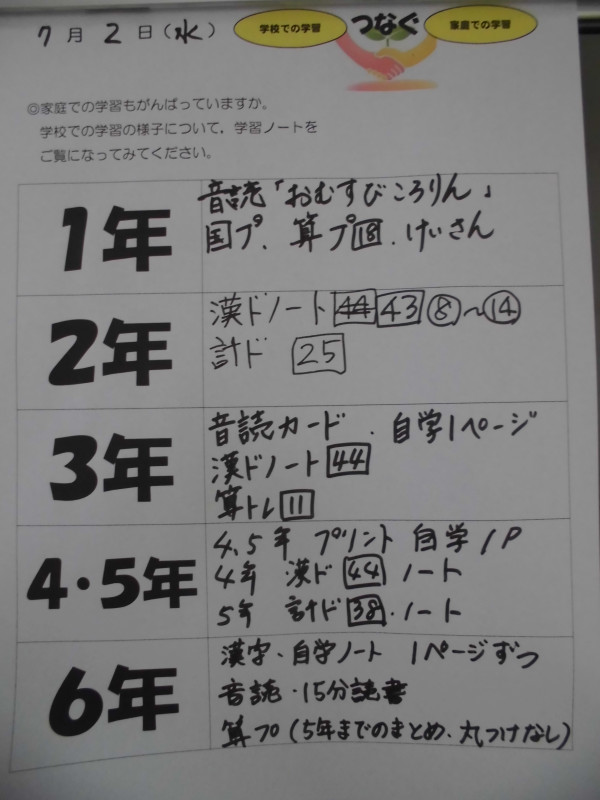 7月2日(水)
学校での学習 つなぐ 家庭での学習
◎家庭での学習もがんばっていますか。
学校での学習の様子について、学習ノートを
ご覧になってみてください。
1年
音読「おむすびころりん」
国プ、算プ18、けいさん
2年
漢ドノート 44 43 ⑧~⑭
計ド 25
3年
音読カード、自学1ページ
漢ドノート 44
算トレ 11
4・5年
4、5年 プリント 自学1P
4年 漢ド 44 ノート
5年 計ド 38・ノート
6年
漢字・自学ノート 1ページずつ
音読・15分読書
算プ(5年までのまとめ、丸つけなし)